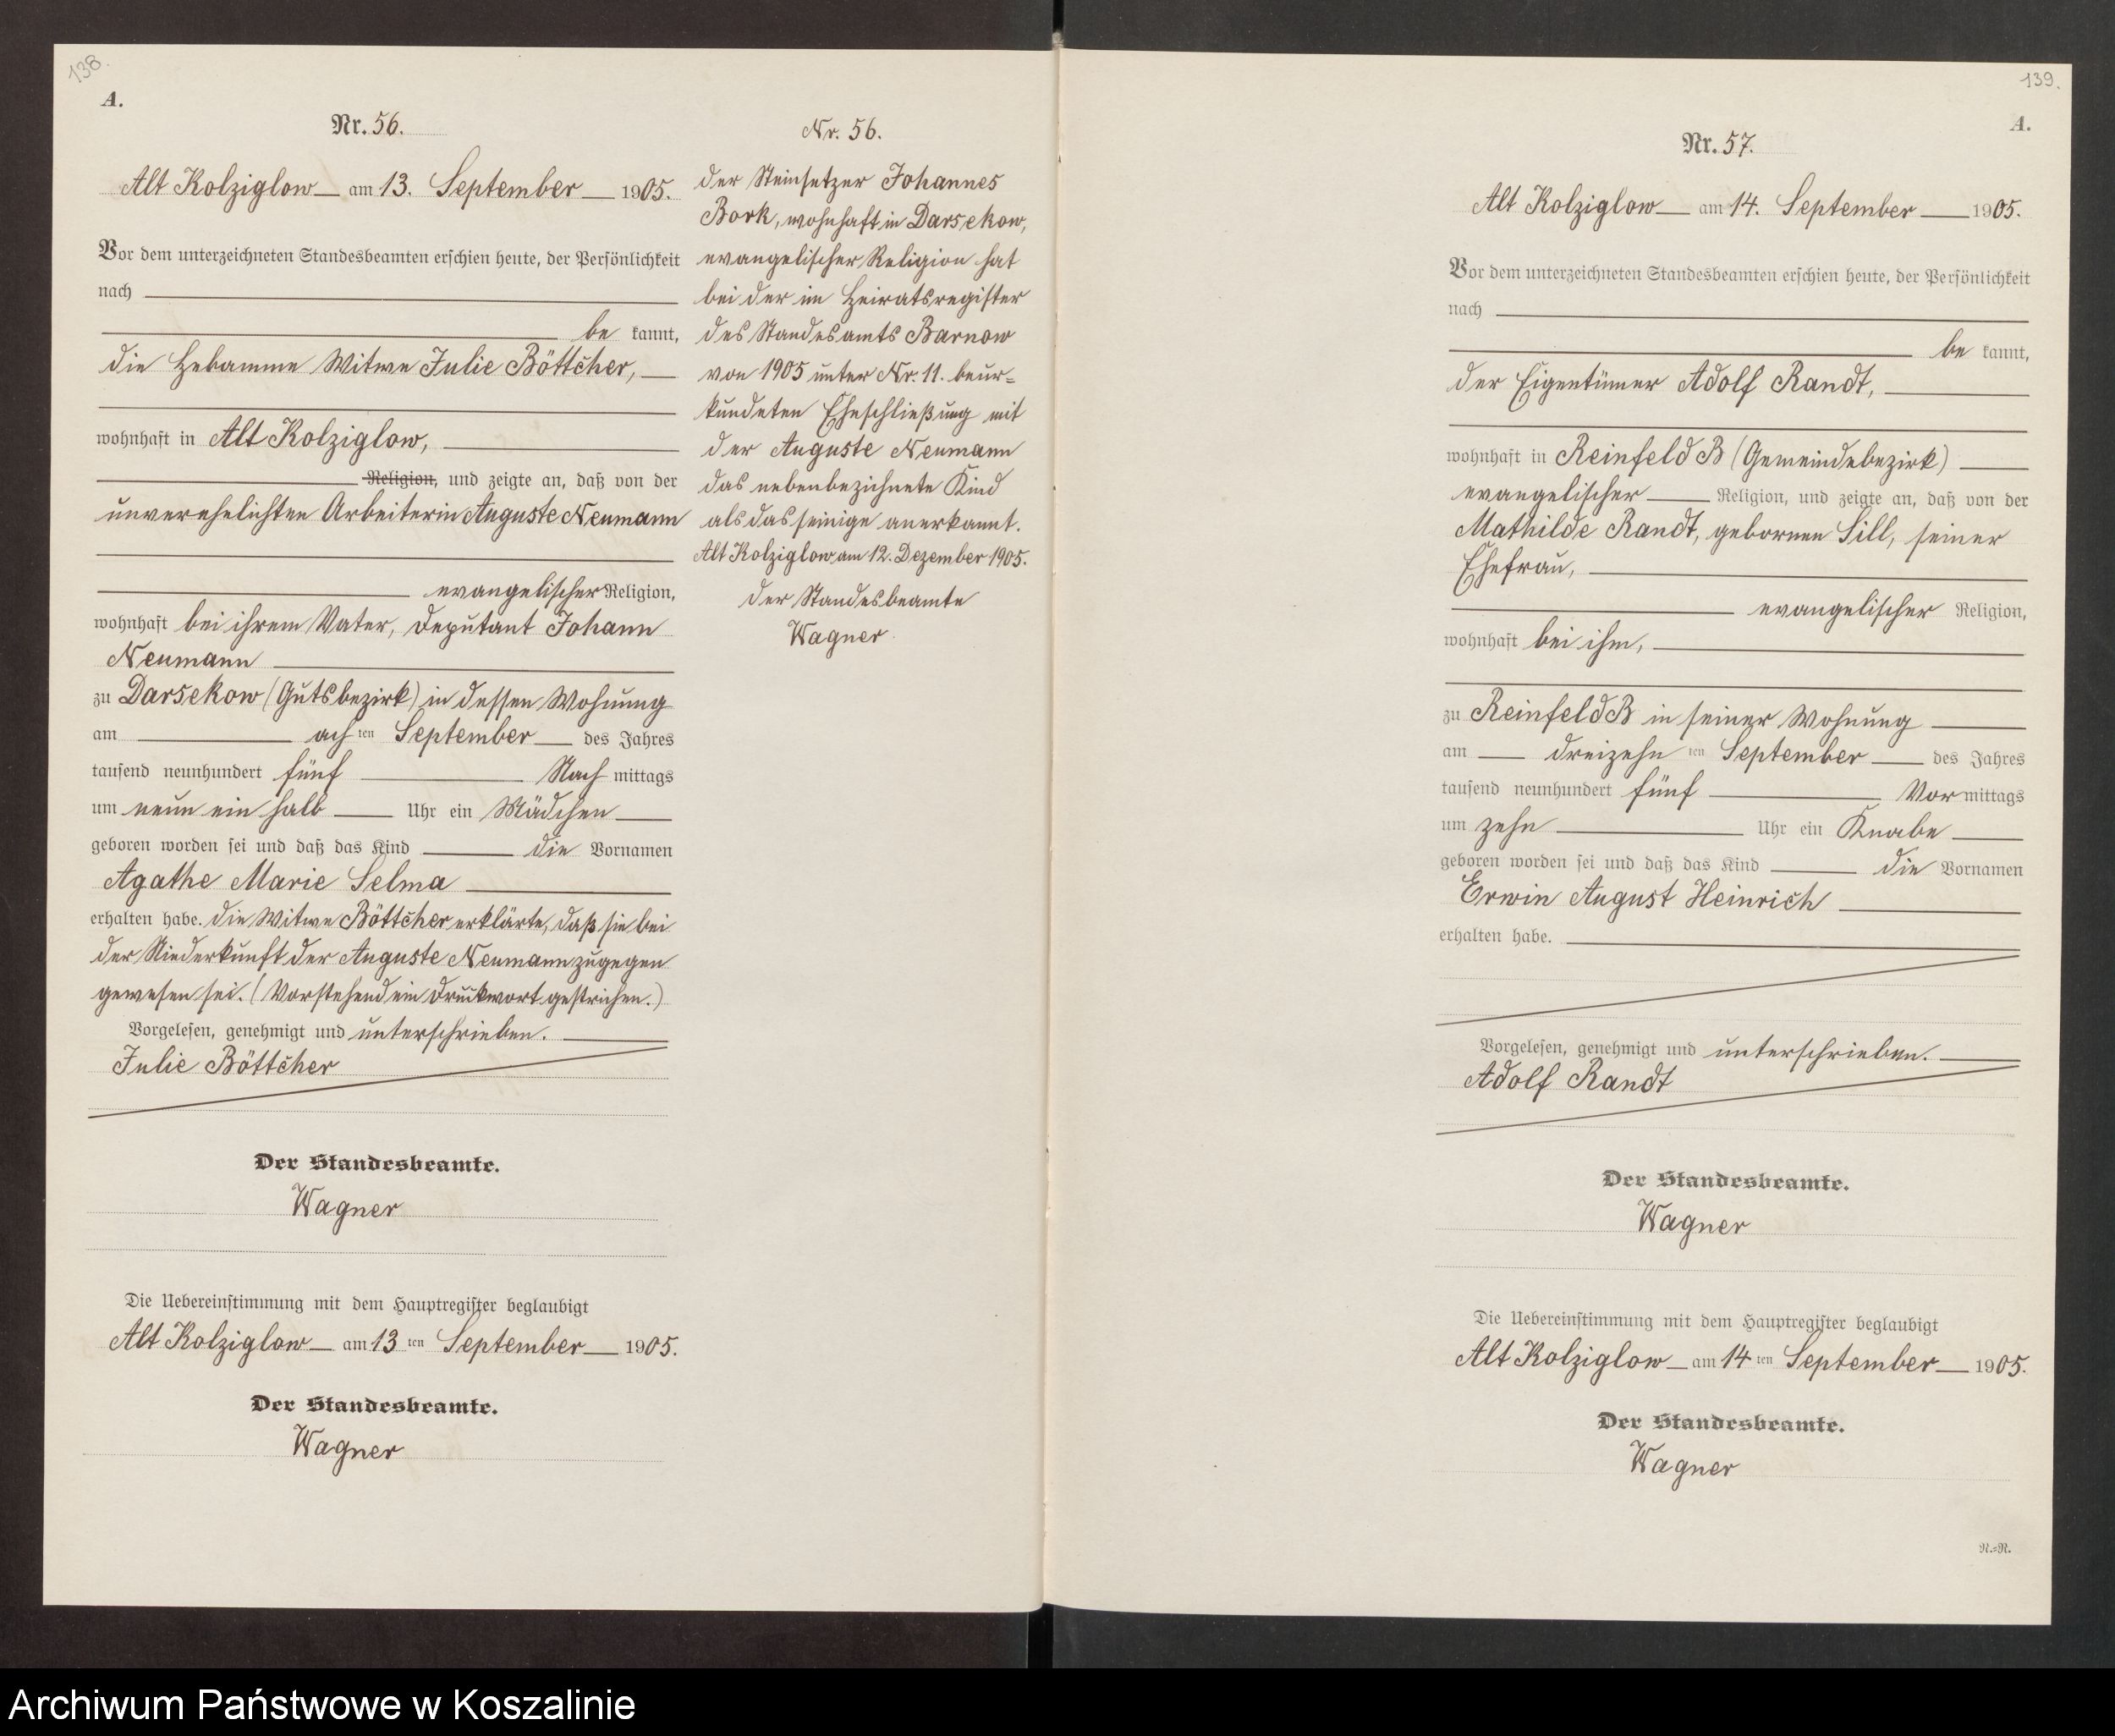 138.
A.
Nr. 56.
Alt Kolziglow am 13. September 1905.
Vor dem unterzeichneten Standesbeamten erschien heute, der Persönlichkeit
nach
be kannt,
die Hebamme Witwe Julie Böttcher,
wohnhaft in Alt Kolziglow,
Religion, und zeigte an, daß von der
unverehelichten Arbeiterin Auguste Neumann
evangelischer Religion,
wohnhaft bei ihrem Vater, Deputant Johann
Neumann
zu Darsekow (Gutsbezirk) in dessen Wohnung
am ach ten September des Jahres
tausend neunhundert fünf Nach mittags
um neun ein halb Uhr ein Mädchen
geboren worden sei und daß das Kind die Vornamen
Agathe Marie Selma
erhalten habe. Die Witwe Böttcher erklärte, daß sie bei
der Niederkunft der Auguste Neumann zugegen
gewesen sei. (Vorstehend ein Druckwort gestrichen.)
Vorgelesen, genehmigt und unterschrieben.
Julie Böttcher
Der Standesbeamte.
Wagner
Die Uebereinstimmung mit dem Hauptregister beglaubigt
Alt Kolziglow am 13 ten September 1905.
Der Standesbeamte.
Wagner
Nr. 56.
Der Steinsetzer Johannes
Bork, wohnhaft in Darsekow,
evangelischer Religion hat
bei der im Heiratsregister
des Standesamts Barnow
von 1905 unter Nr. 11. beur-
kundeten Eheschließung mit
der Auguste Neumann
das nebenbezichnete Kind
als das seinige anerkannt.
Alt Kolziglow am 12. Dezember 1905.
Der Standesbeamte
Wagner
139.
A.
Nr. 57.
Alt Kolziglow am 14. September 1905.
Vor dem unterzeichneten Standesbeamten erschien heute, der Persönlichkeit
nach
be kannt,
der Eigentümer Adolf Randt,
wohnhaft in Reinfeld B (Gemeindebezirk)
evangelischer Religion, und zeigte an, daß von der
Mathilde Randt, gebornen Sill, seiner
Ehefrau,
evangelischer Religion,
wohnhaft bei ihm,
zu Reinfeld B in seiner Wohnung
am dreizehn ten September des Jahres
tausend neunhundert fünf Vor mittags
um zehn Uhr ein Knabe
geboren worden sei und daß das Kind die Vornamen
Erwin August Heinrich
erhalten habe.
Vorgelesen, genehmigt und unterschrieben.
Adolf Randt
Der Standesbeamte.
Wagner
Die Uebereinstimmung mit dem Hauptregister beglaubigt
Alt Kolziglow am 14 ten September 1905.
Der Standesbeamte.
Wagner
R.=R.
Archiwum Państwowe w Koszalinie